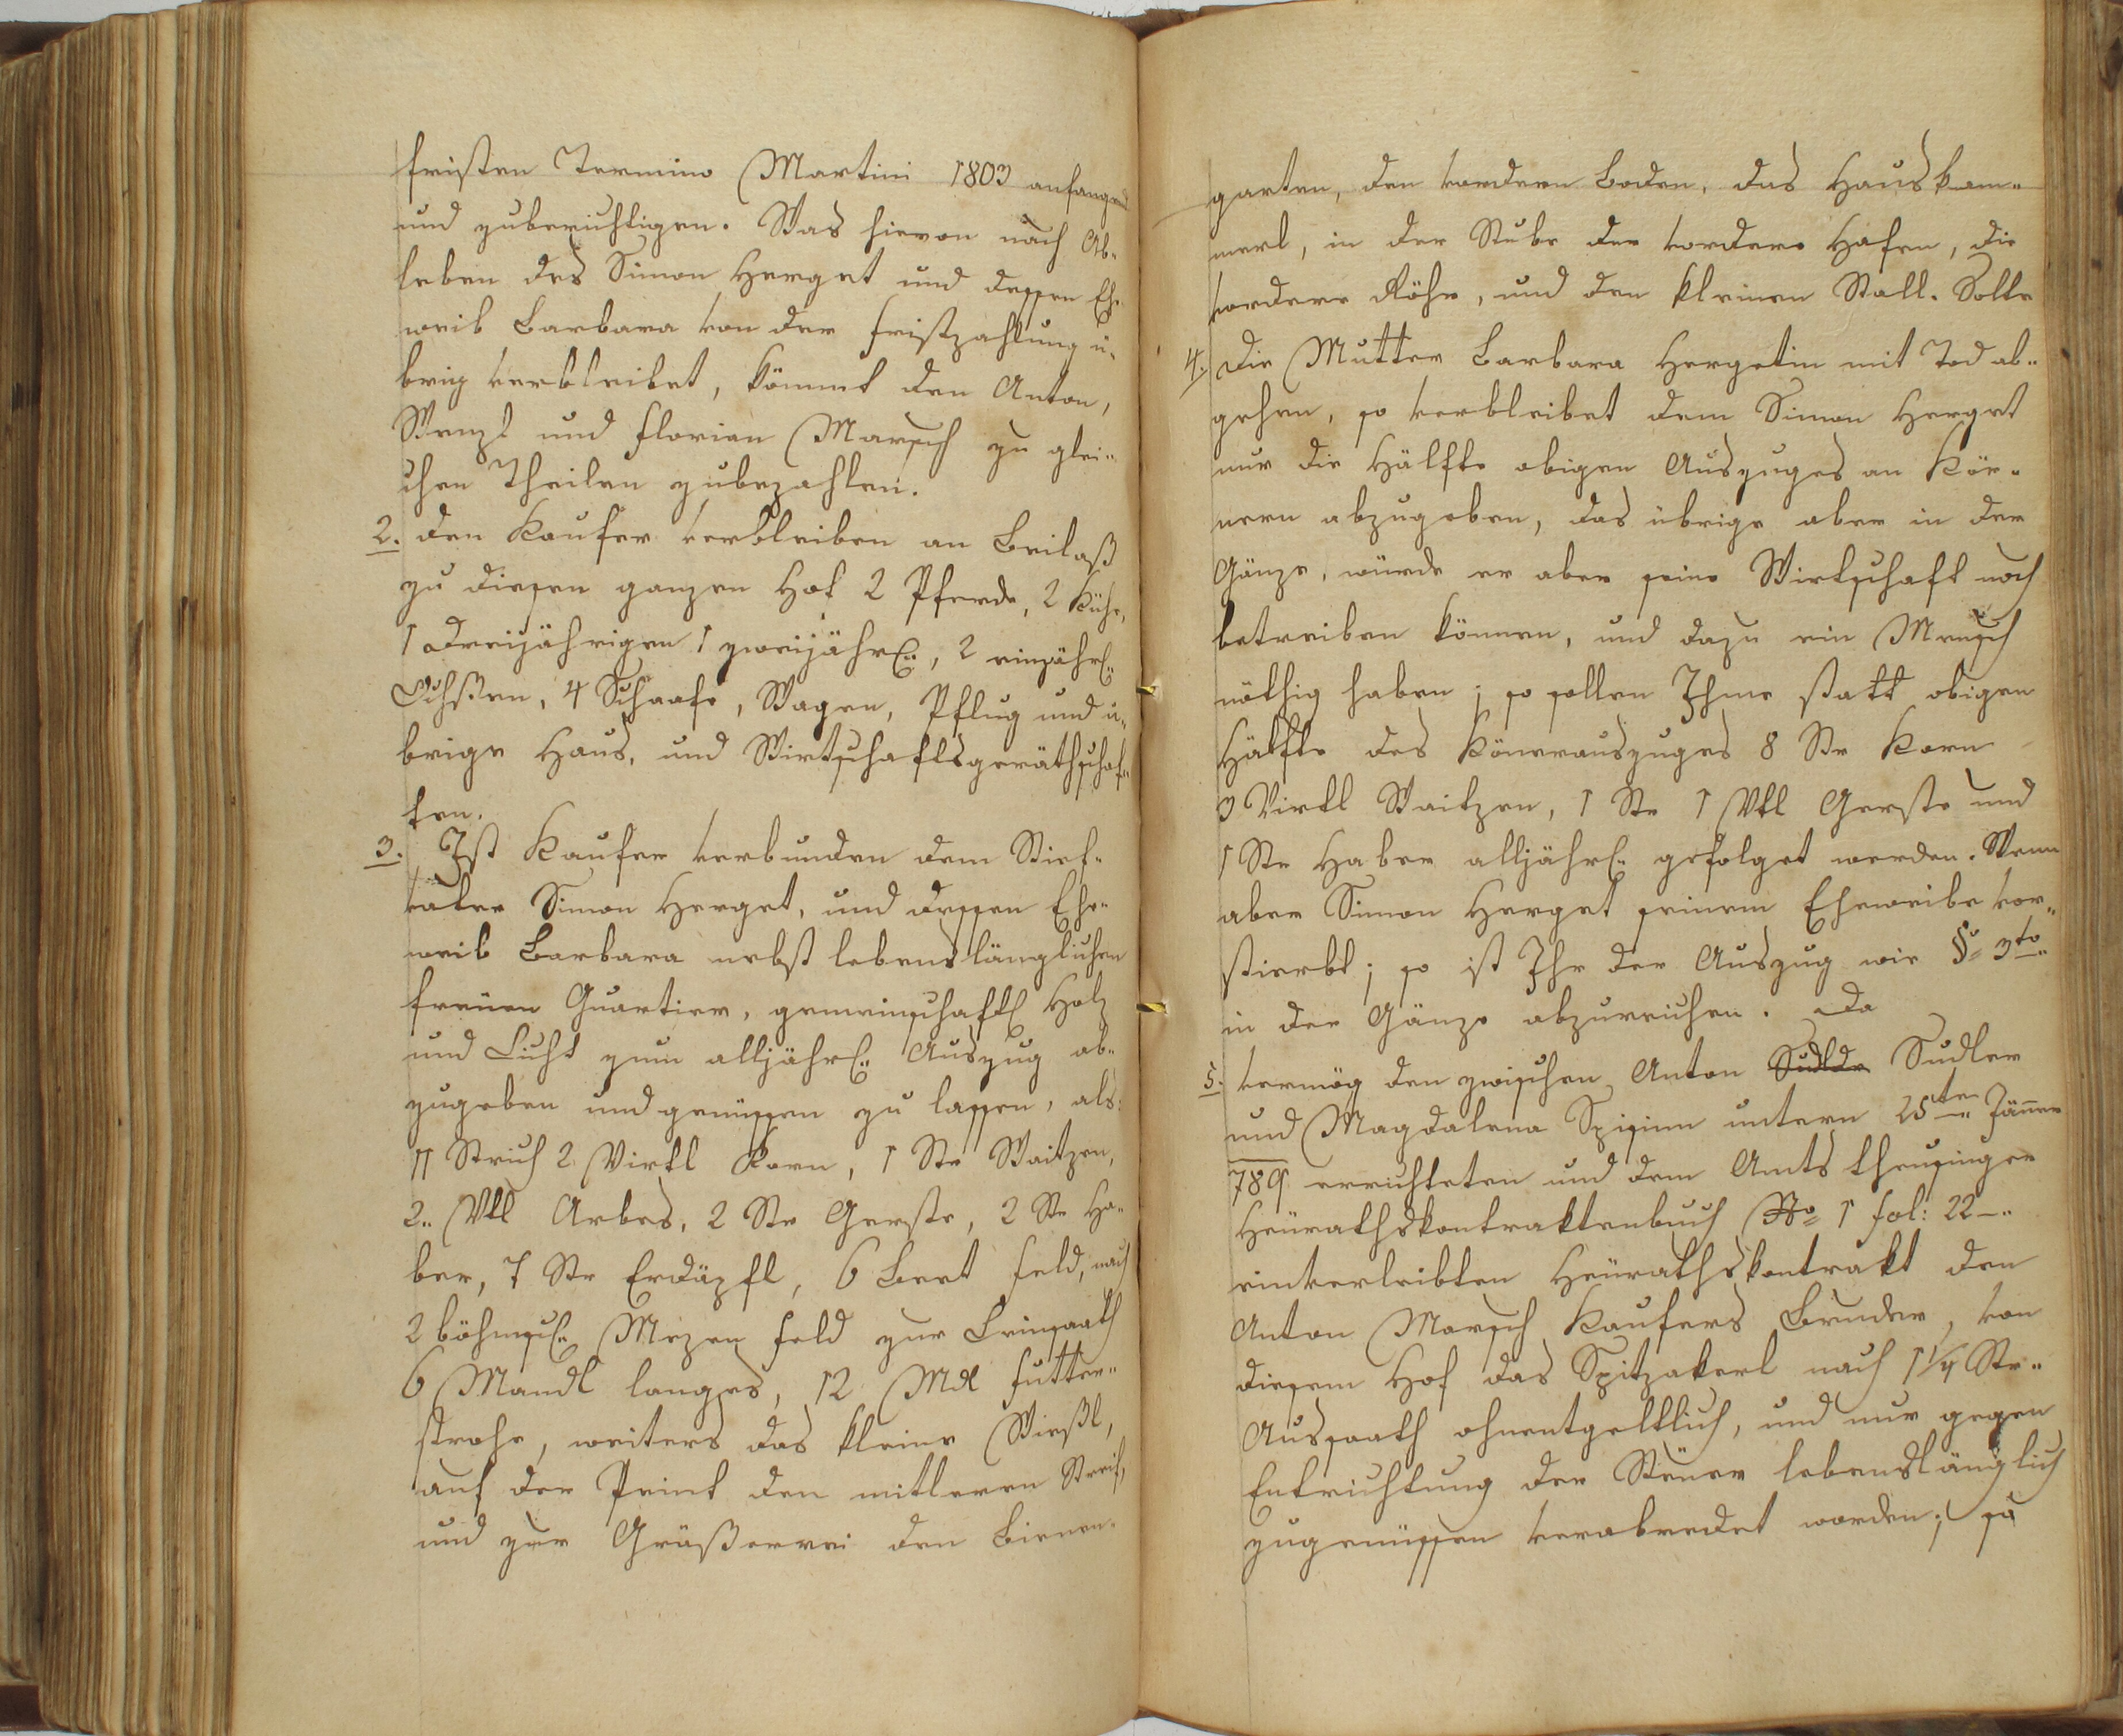 fristen Termino Martini 1803 anfangend
und zuberichtigen. Was hievon nach Ab-
leben des Simon Herget und dessen Ehe-
weib Barbara von der Fristzahlung ü-
brig verbleibet, kömmt den Anton,
Wenzl und Florian Marsch zu glei-
chen Theilen zubezahlen.
2. den Kaufer verbleiben an Beilaß
zu diesen ganzen Hof 2 Pferde, 2 Kühe,
1 Dreijährigen 1 zweijährl., 2 einjährl.
Ochßen, 4 Schaafe, Wagen, Pflug und ü-
brige Haus, und Wirtschaftsgeräthschaf-
ten.
3. Ist Kaufer verbunden dem Stief-
vater Simon Herget, und dessen Ehe-
weib Barbara nebst lebenslänglichen
freüen Quartier, gemeinschaftl Holz
und Licht zum alljährl. Auszug ab-
zugeben und genüssen zu lassen, als:
11 Strich 2 Virtl Korn, 1 Str Waitzen,
2.. Vtl Arbes, 2 Str Gerste, 2 Str Ha-
ber, 7 Str Erdäpfl, 6 Beet Feld, nach
2 böhmschl. Mezen Feld zur Leinsaath
6 Mandl langes, 12 Mdl Futter-
strohe, weiters das kleine Wießl,
auf der Peint den mitleren Streif,
und zur Gräßerrei den Bienen-
garten, den vordern Boden, das Hauskam-
merl, in der Stube der vordere Hafen, die
vordere Röhr, und den kleinen Stall. Solte
4. Die Mutter Barbara Hergetin mit Tod ab-
gehen, so verbleibet dem Simon Herget
nur die Hälfte obigen Auszuges an Kör-
nern abzugeben, das übrige aber in der
Gänze, würde er aber seine Wirtschaft noch
betreiben können, und dazu ein Mensch
nöthig haben; so sollen Ihme statt obigen
Hälfte des Könerauszuges 8 Str Korn
3 Virtl Waitzen, 1 Str 1 Vtl Gerste und
1 Str Haber alljährl. gefolget werden. Wenn
aber Simon Herget seinem Eheweibe vor-
stierbt; so ist Ihr der Auszug wie §= 3to
in der Gänze abzureichen. Da
5. vermög den zwischen Anton Sudler
und Magdalena Spisinn untern 25ten Jäner
789 errichteten und dem Amts theusinger
Heürathskontraktenbuch No 1 fol: 22
einverleibten Heürathskontrakt den
Anton Marsch Kaufers Bruder, von
diesem Hof das Spitzakerl nach 1 1/4 Str..
Aussaath ohnentgeltlich, und nur gegen
Entrichtung der Steüer lebenslänglich
zugenüssen verabredet worden; so